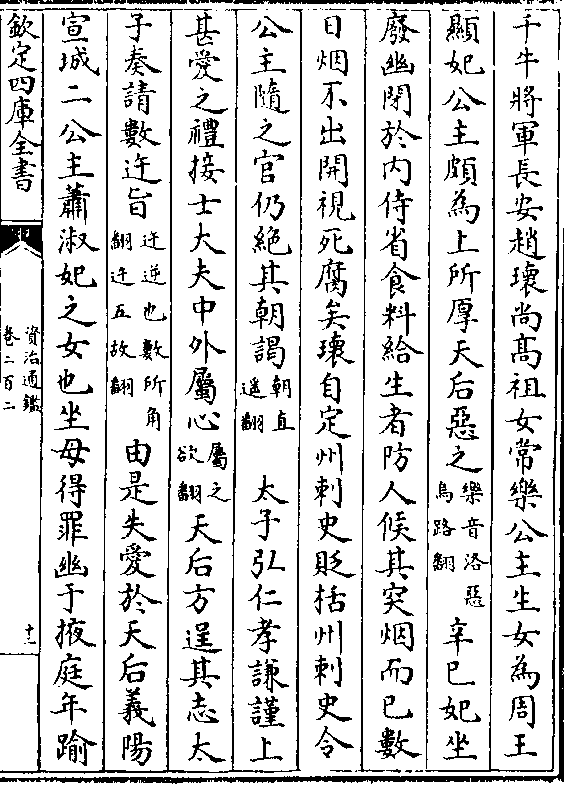 千牛將軍長安趙瓌尚髙祖女常樂公主生女為周王
顯妃公主頗為上所厚天后惡之樂音洛惡烏路翻辛巳妃坐
廢幽閉於内侍省食料給生者防人候其突烟而已數
日烟不出開視死腐矣瓌自定州刺史貶括州刺史令
公主隨之官仍絶其朝謁朝直遥翻太子弘仁孝謙謹上
甚愛之禮接士大夫中外屬心屬之欲翻天后方逞其志太
子奏請數迕旨迕逆也數所角翻迕五故翻由是失愛於天后義陽
宣城二公主蕭淑妃之女也坐母得罪幽于掖庭年踰
欽定四庫全書
資治通鑑
卷二百二
十二